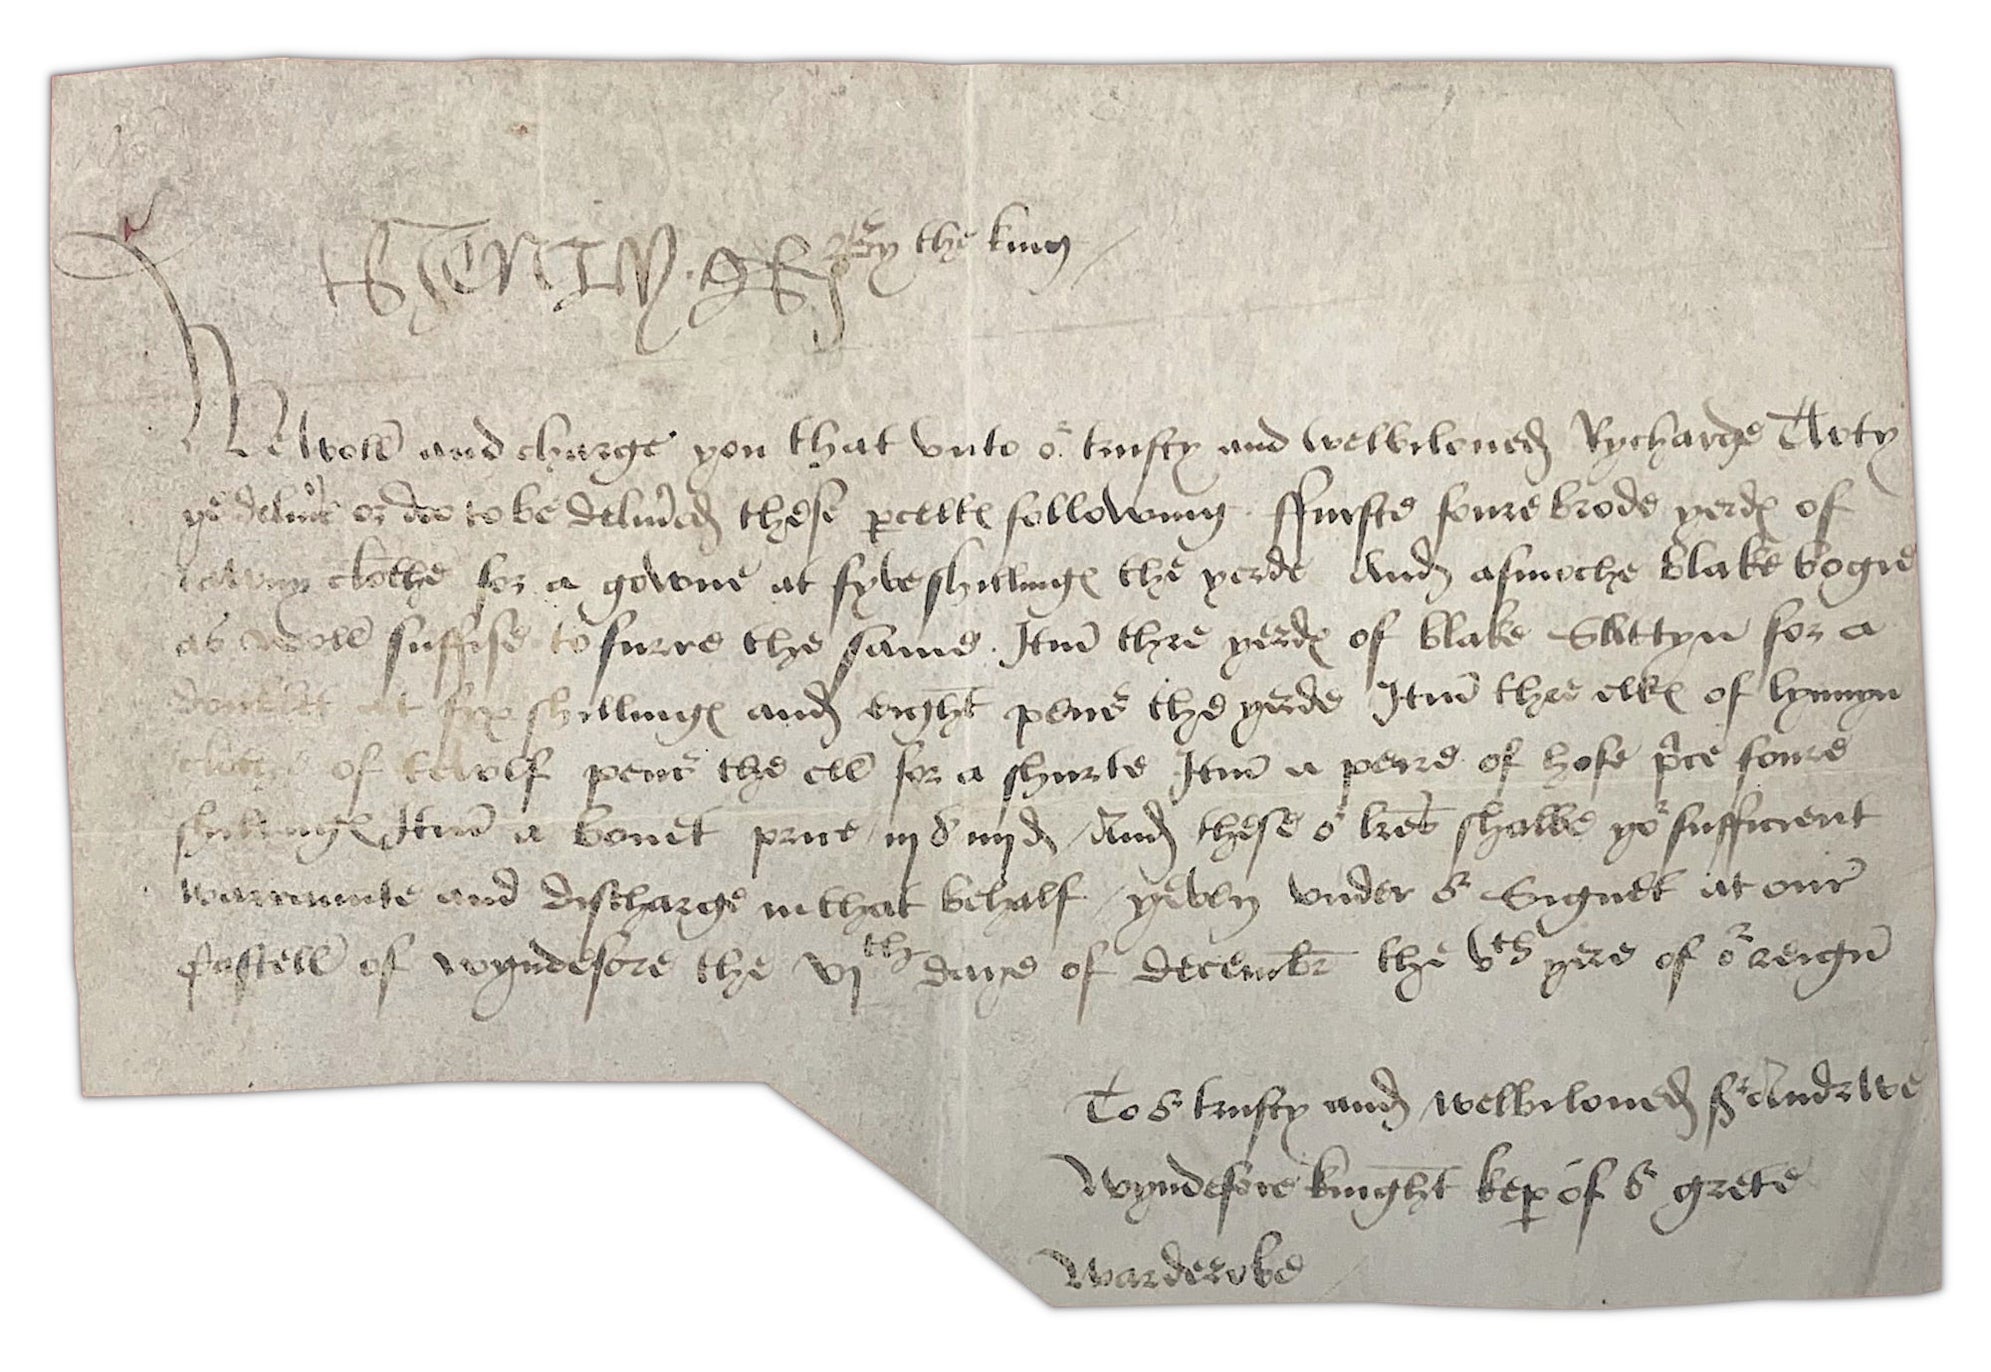 HENRY R By the king
We woll and charge you that vnto or trusty and welbiloued Rycharde
ye deliuer or doo to be deliuered these pcelles folloWing ffurste foure brode yerdes of
taWny clothe for a goWne at fyve shillinges the yerde And asmoche blake bogie
as woll suffise to furre the same Itm thre yerdes of blake Sattyn for a
doublett at syx shillinges and eight pence the yerde Itm thre elles of lynnyn
clothe of tWolf pence the ell for a shurte Itm a peire of hose price foure
shillinges Itm a bonet price iij s iiij d And these or lres shalbe yor sufficient
warraunte and discharge in that behalf yeven vnder or Signet at oure
Castell of Wyndesore the vjth daye of decembr the vth yere of or reign
To or trusty and welbiloued Sr AndreWe
Wyndesore knight kep of or grete
Warderobe